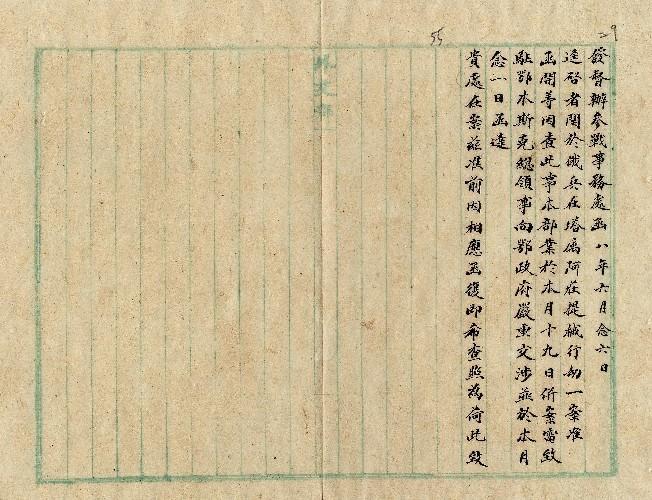 29
55
發督辦參戰事務處函八年六月念六日
逕啓者關於俄兵在塔屬阿莊提械行劫一案准
函開等因查此事本部業於本月十九日併案電致
駐鄂木斯克總領事向鄂政府嚴重交涉並於本月
念一日函達
貴處在案茲准前因相應函復即希查照為荷此致